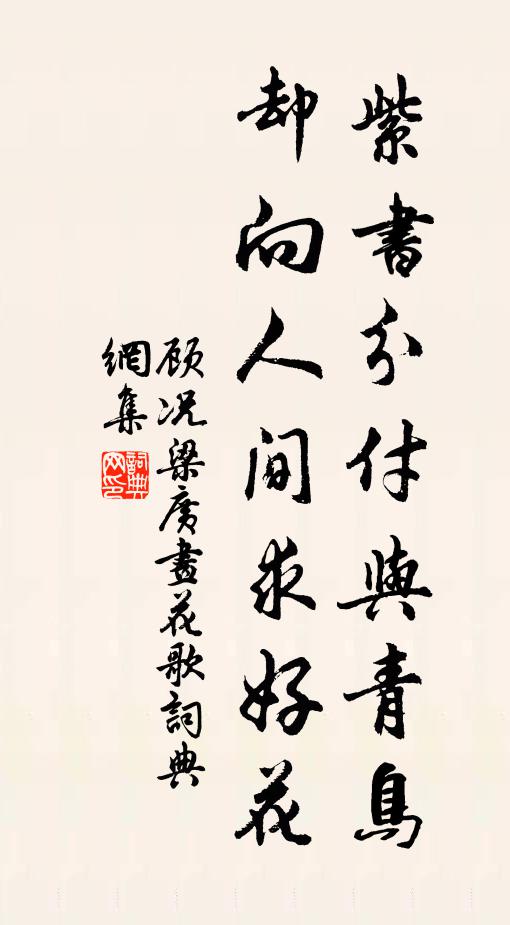 紫書分付與青鳥
却向人間求好花
顾况梁廣畫花歌詞典
網集
詞典
网印